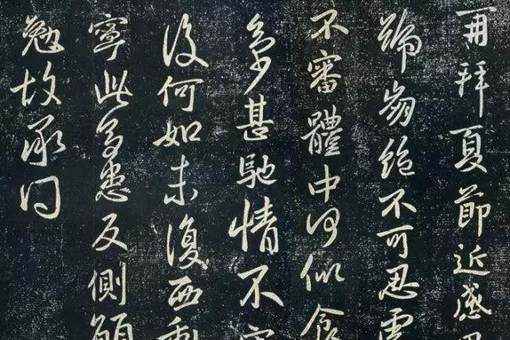 再拜夏節近感思
號絕不可忍
不審體中何似食
甚馳情不
後何如未復西
寧此多患反側
勉故承問